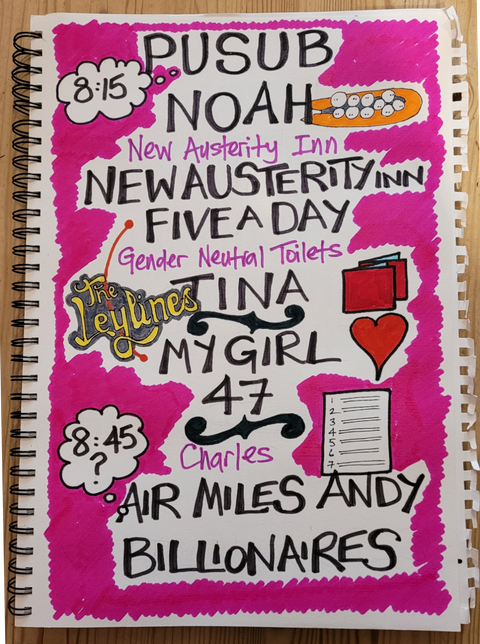 PUSUB
8:15
NOAH
New Austerity Inn
NEW AUSTERITY INN
FIVE A DAY
Gender Neutral Toilets
The
Leylines
TINA
MY GIRL
47
1
2
3
4
5
6
7
8:45
?
Charles
AIR MILES ANDY
BILLIONAIRES